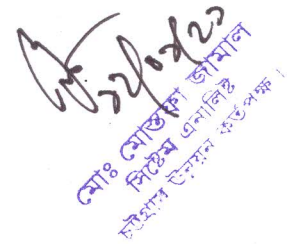 ১২/০৯/২১
মোঃ মোস্তফা জামাল
সিস্টেম এনালিষ্ট
চট্টগ্রাম উন্নয়ন কর্তৃপক্ষ।